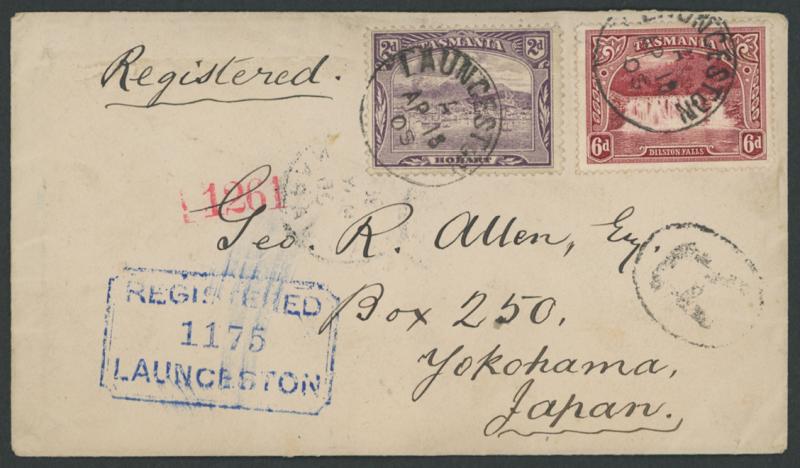 Registered.
2d TASMANIA 2d
HOBART
LAUNCESTON
AP 18
05
TASMANIA
6d 6d
DILSTON FALLS
LAUNCESTON
1261
Geo. R. Allen, Esq.
Box 250,
Yokohama,
Japan.
REGISTERED
1175
LAUNCESTON